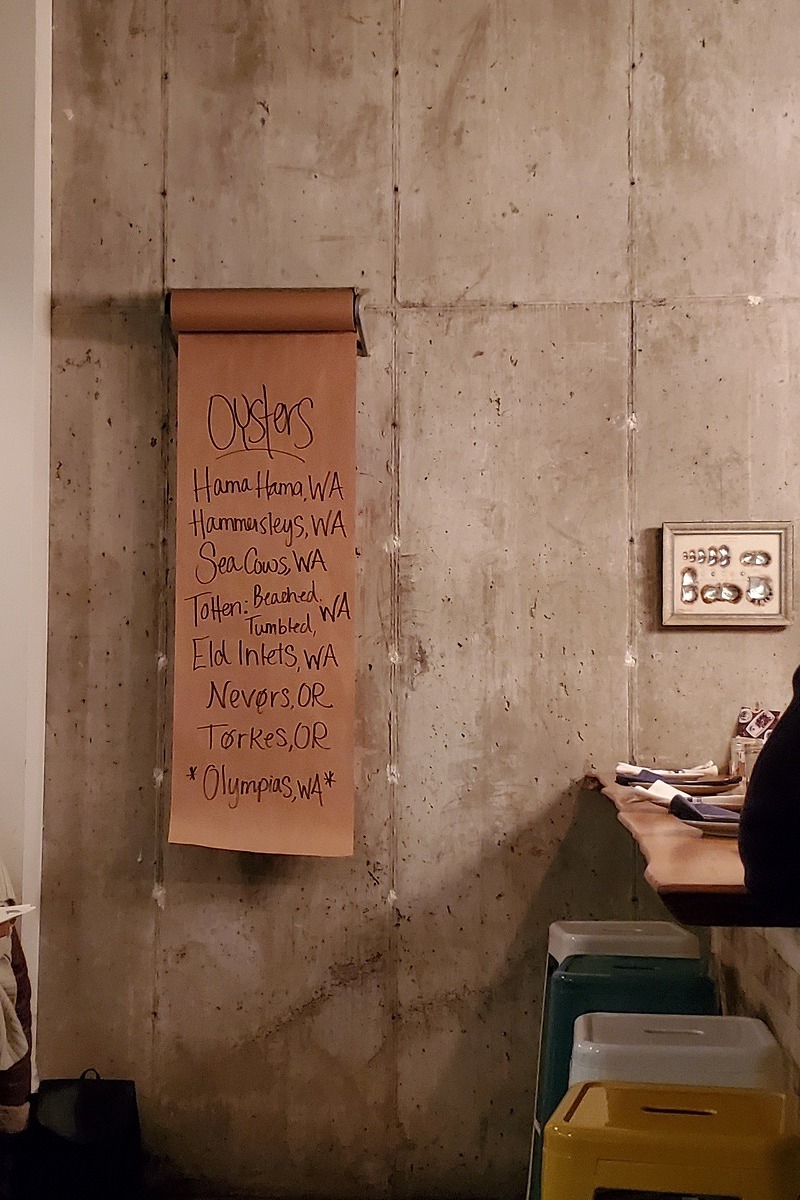 Oysters
Hama Hama, WA
Hammersleys, WA
Sea Cows, WA
Totten: Beached, WA
Tumbled,
Eld Inlets, WA
Nevørs, OR
Tørkes, OR
*Olympias, WA*